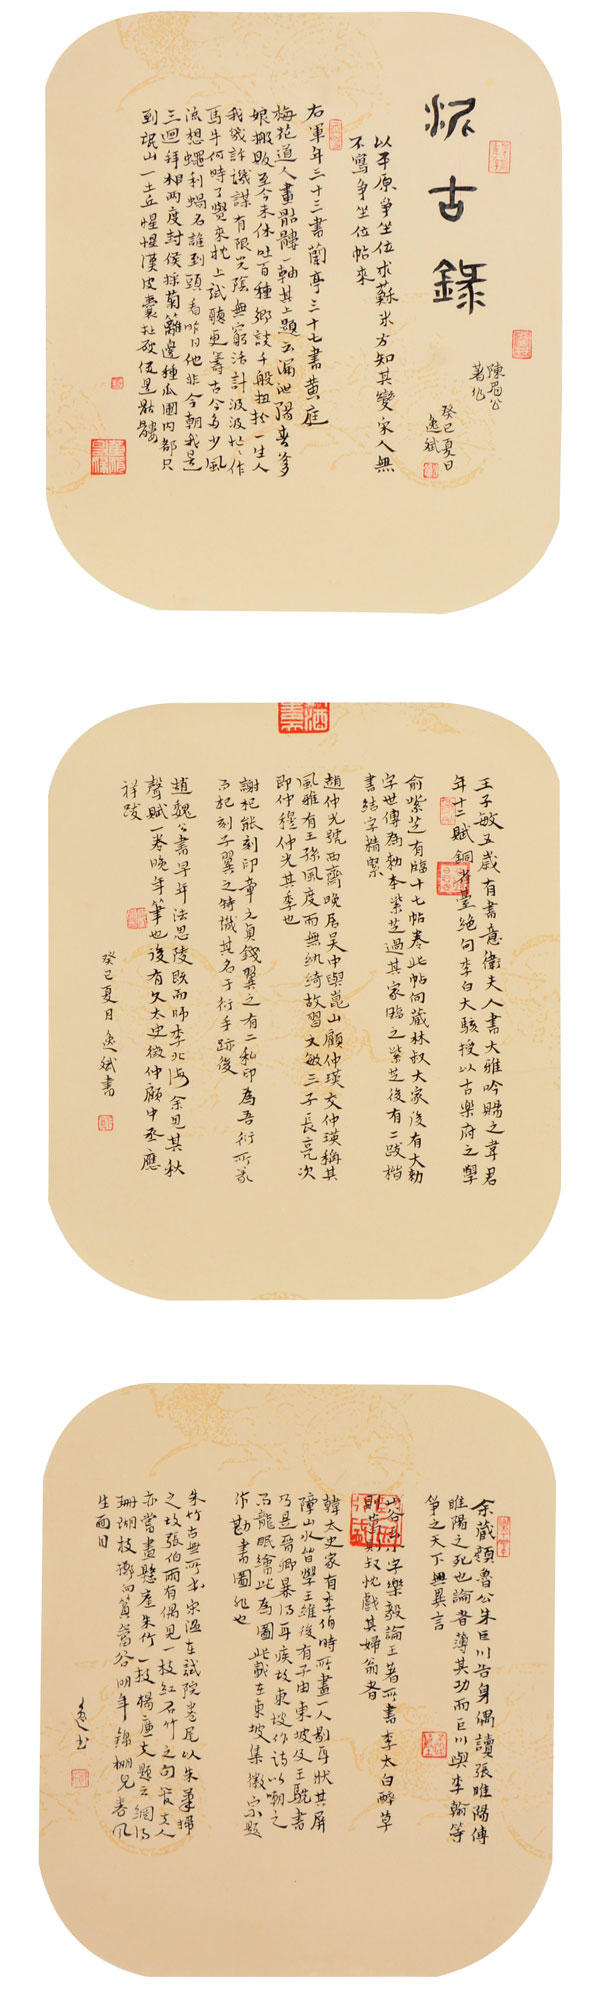 泥古錄
陳眉公
著作
癸巳夏日
逸斌
以平原爭坐位求蘇米方知其變宋人無
不寫爭坐位帖來
右軍年三十三書蘭亭三十七書黃庭
梅花道人畫骷髏一軸其上題云漏泄陽春爹
娘搬販至今未休吐百種鄉談千般扭扮一生人
我幾許機謀有限光陰無窮活計汲汲忙忙作
馬牛何時了覺來枕上試聽更籌古今多少風
流想蠅利蝸名誰到頭看昨日他非今朝我是
三回拜相兩度封侯採菊籬邊種瓜圃內都只
到邙山一土丘惺惺漢皮囊扯破便是骷髏
王子敏五歲有書意衛夫人書大雅吟賜之韋君
年十一賦銅雀臺絕句李白大駭授以古樂府之學
俞紫芝有臨十七帖卷此帖向藏林叔大家後有大勅
字世傳為勅本紫芝過其家臨之紫芝後有二跋楷
書結字精緊
趙仲光號西齋晚居吳中與崑山顧仲瑛交仲瑛稱其
風雅有王孫風度而無紈綺故習文敏三子長亮次
即仲穆仲光其季也
謝杞能刻印章之貞錢翼之有二私印為吾衍所篆
而杞刻子翼之特識其名于衍手跡後
趙魏公書早年法思陵既而師李北海余見其秋
聲賦一卷晚年筆也後有久太史徵仲顧中丞應
祥跋
癸巳夏日逸斌書
余藏顏魯公朱巨川告身偶讀張睢陽傳
睢陽之死也論者薄其功而巨川與李翰等
爭之天下無異言
山谷小字樂毅論王著所書李太白醉草
則葛叔忱戲其婦翁者
韓太史家有李伯時所畫一人剔耳狀其屏
障山水皆學王維後有子由東坡及王駙書
乃是晉卿暴得耳疾故東坡作詩以嘲之
而龍眠繪此為圖此載在東坡集徽宗題
作勘書圖非也
朱竹古無所出宋溫在試院卷尾以朱筆掃
之故張伯雨有偶見一枝紅石竹之句管夫人
亦嘗畫懸崖朱竹一枝楊廉夫題云網得
珊瑚枝擲向篔簹谷明年錦棚兒春風
生面目
逸書